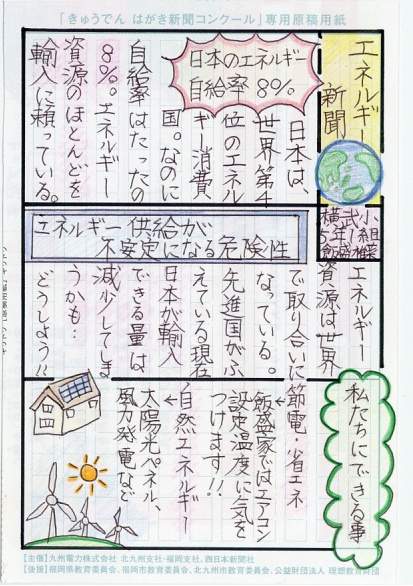 「きゅうでん はがき新聞コンクール」専用原稿用紙
エネルギー
新聞
日本のエネルギー
自給率 8%
日本は、
世界第4
位のエネル
ギー消費
国。なのに
自給率はたったの
8%。エネルギー
資源のほとんどを
輸入に頼っている。
エネルギー供給が
不安定になる危険性
エネルギー
資源は世界
で取り合いに
なっている。
先進国がふ
えている現在
日本が輸入
できる量は
減少してしま
うかも…
どうしよう!!
私たちにできる事
節電・省エネ
飯盛家ではエアコン
設定温度に気を
つけます!!
自然エネルギー
太陽光パネル、
風力発電など
【主催】九州電力株式会社 北九州支社・福岡支社、西日本新聞社
【後援】福岡県教育委員会、福岡市教育委員会、北九州市教育委員会、公益財団法人 理想教育財団